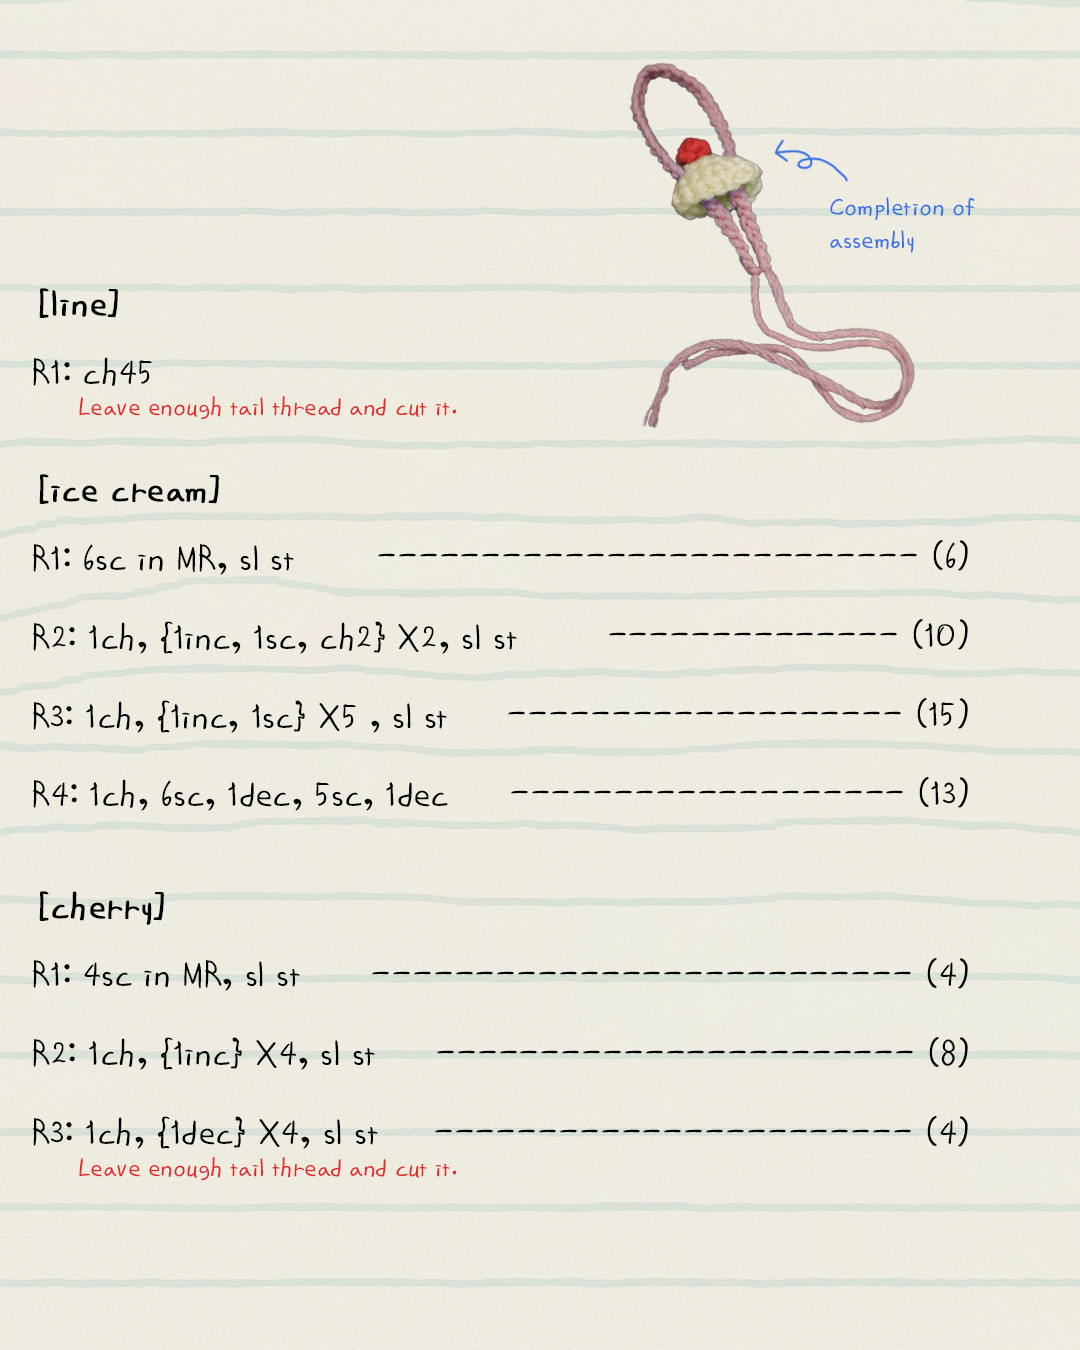 Completion of
assembly
[line]
R1: ch45
Leave enough tail thread and cut it.
[ice cream]
R1: 6sc in MR, sl st -------------------------- (6)
R2: 1ch, {1inc, 1sc, ch2} X2, sl st -------------- (10)
R3: 1ch, {1inc, 1sc} X5 , sl st ------------------- (15)
R4: 1ch, 6sc, 1dec, 5sc, 1dec ------------------- (13)
[cherry]
R1: 4sc in MR, sl st -------------------------- (4)
R2: 1ch, {1inc} X4, sl st ----------------------- (8)
R3: 1ch, {1dec} X4, sl st ----------------------- (4)
Leave enough tail thread and cut it.